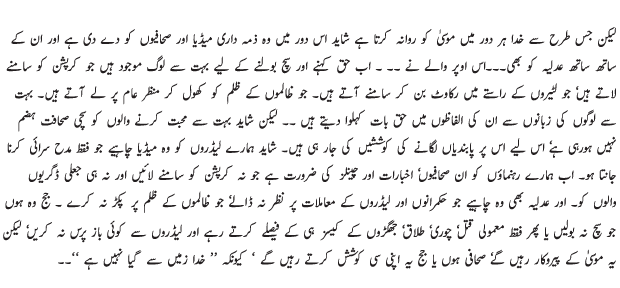 لیکن جس طرح سے خدا ہر دور میں موسیٰ کو روانہ کرتا ہے شاید اس دور میں وہ ذمہ داری میڈیا اور صحافیوں کو دے دی ہے اور ان کے
ساتھ ساتھ عدلیہ کو بھی۔۔۔اس اوپر والے نے ۔۔ اب حق کہنے اور سچ بولنے کے لیے بہت سے لوگ موجود ہیں جو کرپشن کو سامنے
لاتے ہیںٔ جو لٹیروں کے راستے میں رکاوٹ بن کر سامنے آتے ہیں۔ جو ظالموں کے ظلم کو کھول کر منظر عام پر لے آتے ہیں۔ بہت
سے لوگوں کی زبانوں سے ان کی الفاظوں میں حق بات کہلوا دیتے ہیں ۔۔ لیکن شاید بہت سے محبت کرنے والوں کو سچی صحافت ہضم
نہیں ہورہی ہۓ اس لیے اس پر پابندیاں لگانے کی کوششیں کی جار ہی ہیں۔ شاید ہمارے لیڈروں کو وہ میڈیا چاہیے جو فقط مدح سرائی کرنا
جانتا ہو۔ اب ہمارے رہنماؤں کو ان صحافیوںٔ اخبارات اور چینلز کی ضرورت ہے جو نہ کرپشن کو سامنے لائیں اور نہ ہی جعلی ڈگریوں
والوں کو۔ اور عدلیہ بھی وہ چاہیے جو حکمرانوں اور لیڈروں کے معاملات پر نظر نہ ڈالۓ جو ظالموں کے ظلم پر پکڑ نہ کرے ۔ جج وہ ہوں
جو سچ نہ بولیں یا پھر فقط معمولی قتلٔ چوریٔ طلاقٔ جھگڑوں کے کیسز ہی کے فیصلے کرتے رہے اور لیڈروں سے کوئی باز پرس نہ کریںٔ لیکن
یہ موسیٰ کے پیروکار رہیں گۓ صحافی ہوں یا جج یہ اپنی سی کوشش کرتے رہیں گے ‘ کیونکہ ’’ خدا زمیں سے گیا نہیں ہے ‘‘۔۔